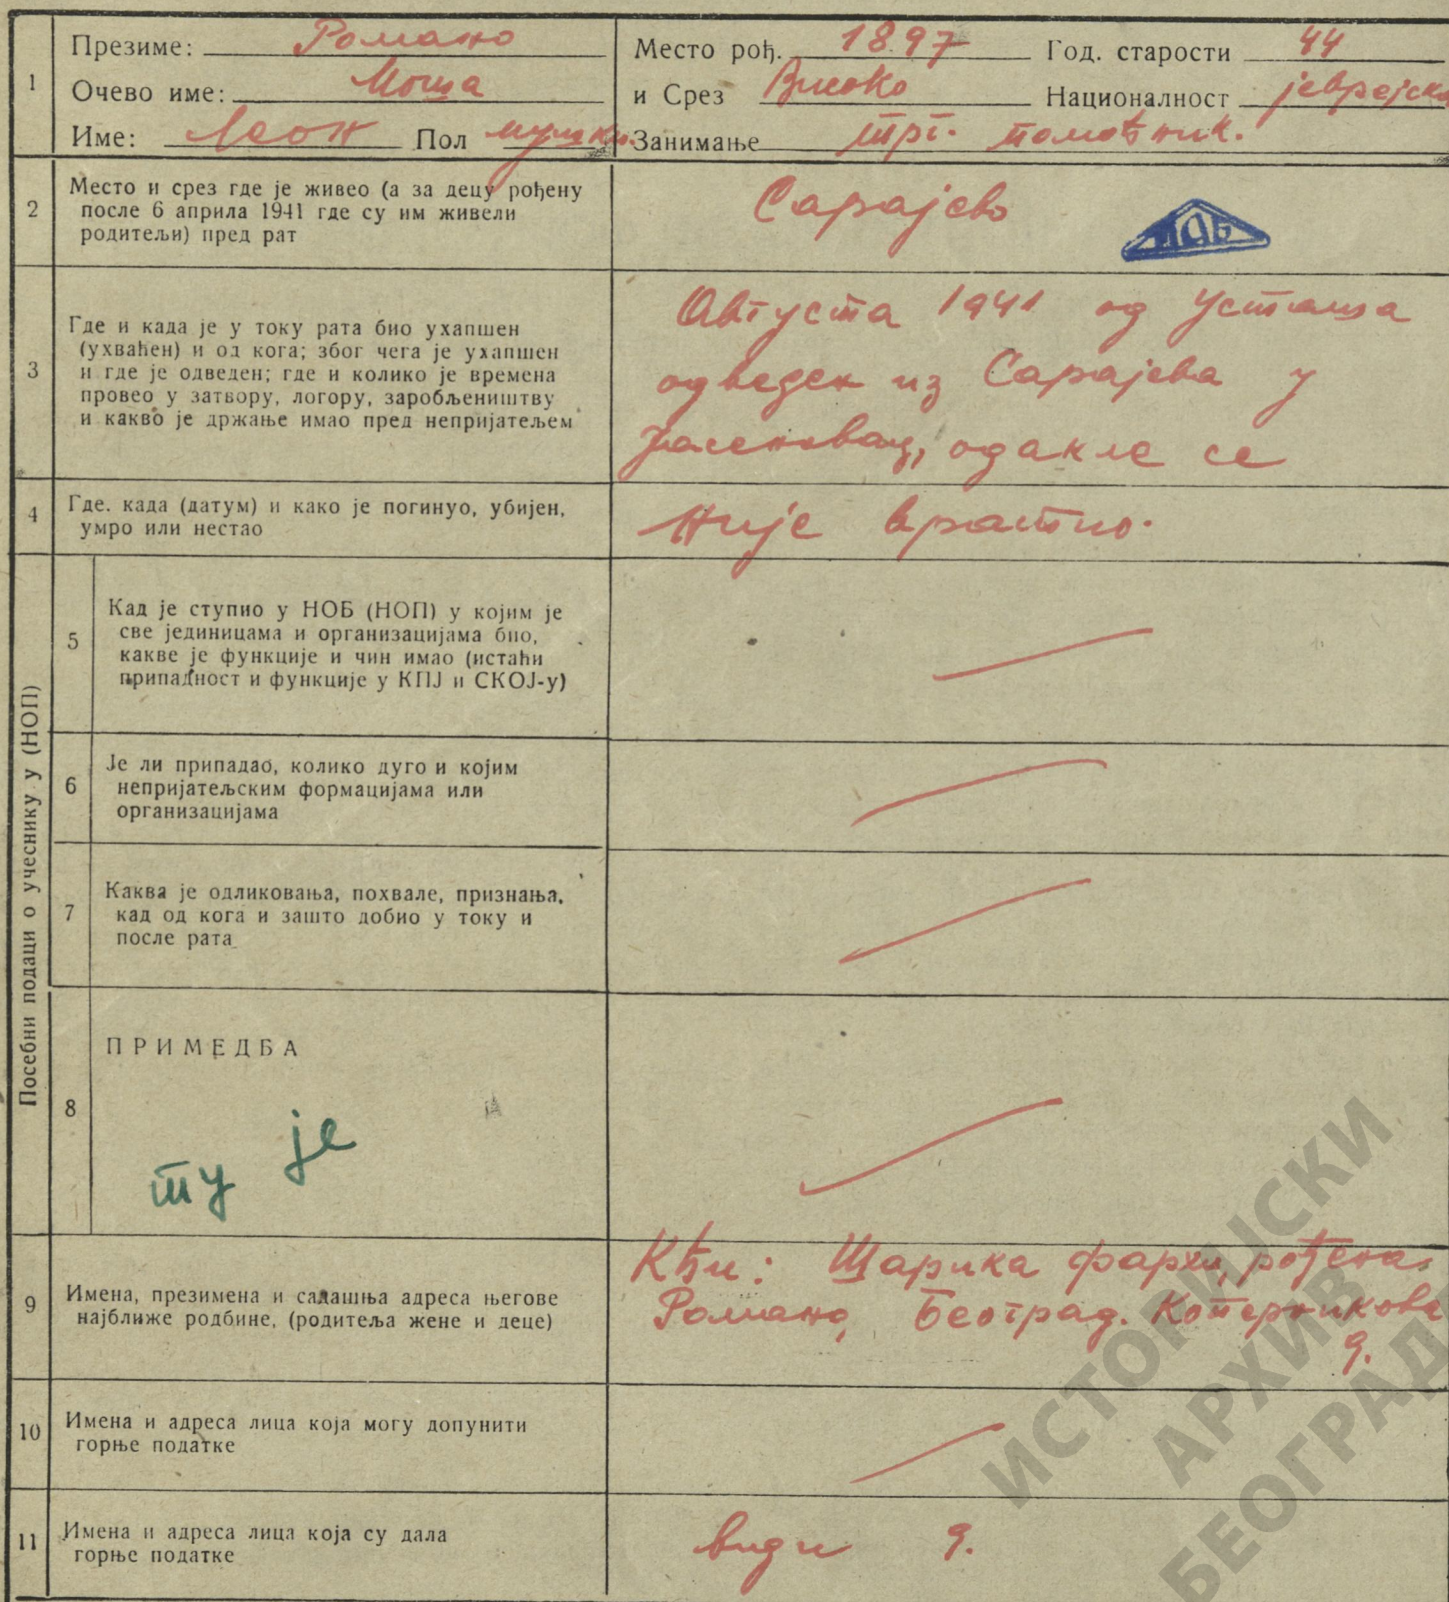 1
Презиме: Романо
Очево име: Моша
Име: Леон Пол мушки.
Место рођ. 1897 Год. старости 44
и Срез Високо Националност јеврејска
Занимање трг. помоћник.
2
Место и срез где је живео (а за децу рођену
после 6 априла 1941 где су им живели
родитељи) пред рат
Сарајево
3
Где и када је у току рата био ухапшен
(ухваћен) и од кога; због чега је ухапшен
и где је одведен; где и колико је времена
провео у затвору, логору, заробљеништву
и какво је држање имао пред непријатељем
Августа 1941 од Усташа
одведен из Сарајева у
Јасеновац, одакле се
4
Где. када (датум) и како је погинуо, убијен,
умро или нестао
није вратио.
Посебни подаци о учеснику у (НОП)
5
Кад је ступио у НОБ (НОП) у којим је
све јединицама и организацијама био,
какве је функције и чин имао (истаћи
припадност и функције у КПЈ и СКОЈ-у)
6
Је ли припадао, колико дуго и којим
непријатељским формацијама или
организацијама
7
Каква је одликовања, похвале, признања,
кад од кога и зашто добио у току и
после рата
8
ПРИМЕДБА
ту је
9
Имена, презимена и садашња адреса његове
најближе родбине, (родитеља жене и деце)
Кћи: Шарика Фархи, рођена
Романо, Београд. Коперникова
9.
10
Имена и адреса лица која могу допунити
горње податке
11
Имена и адреса лица која су дала
горње податке
види 9.
ИСТОРИЈСКИ
АРХИВ
БЕОГРАД